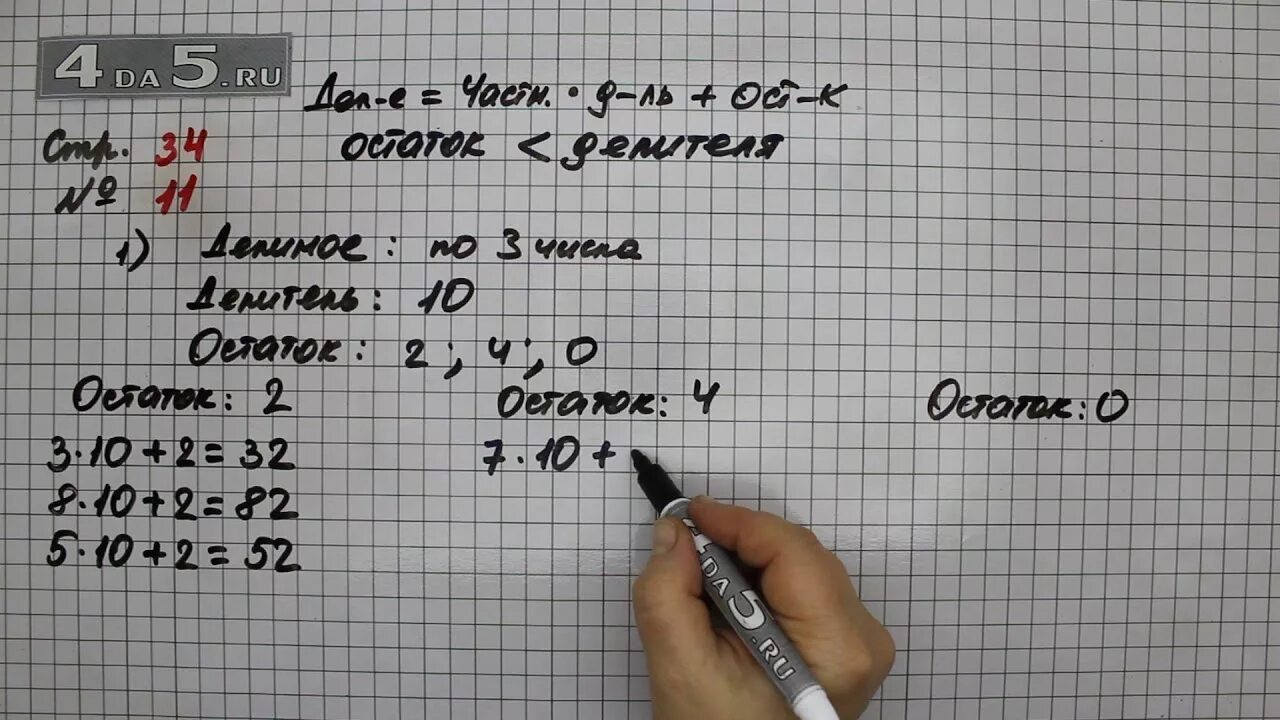 4DA5.RU
Дел-е = Частн. · д-ль + Ост-к
Стр. 34
остаток < делителя
№ 11
1) Делимое : по 3 числа
Делитель : 10
Остаток : 2 ; 4 ; 0
Остаток : 2
3·10+2=32
8·10+2=82
5·10+2=52
Остаток : 4
7·10+
Остаток : 0
DA5.RU